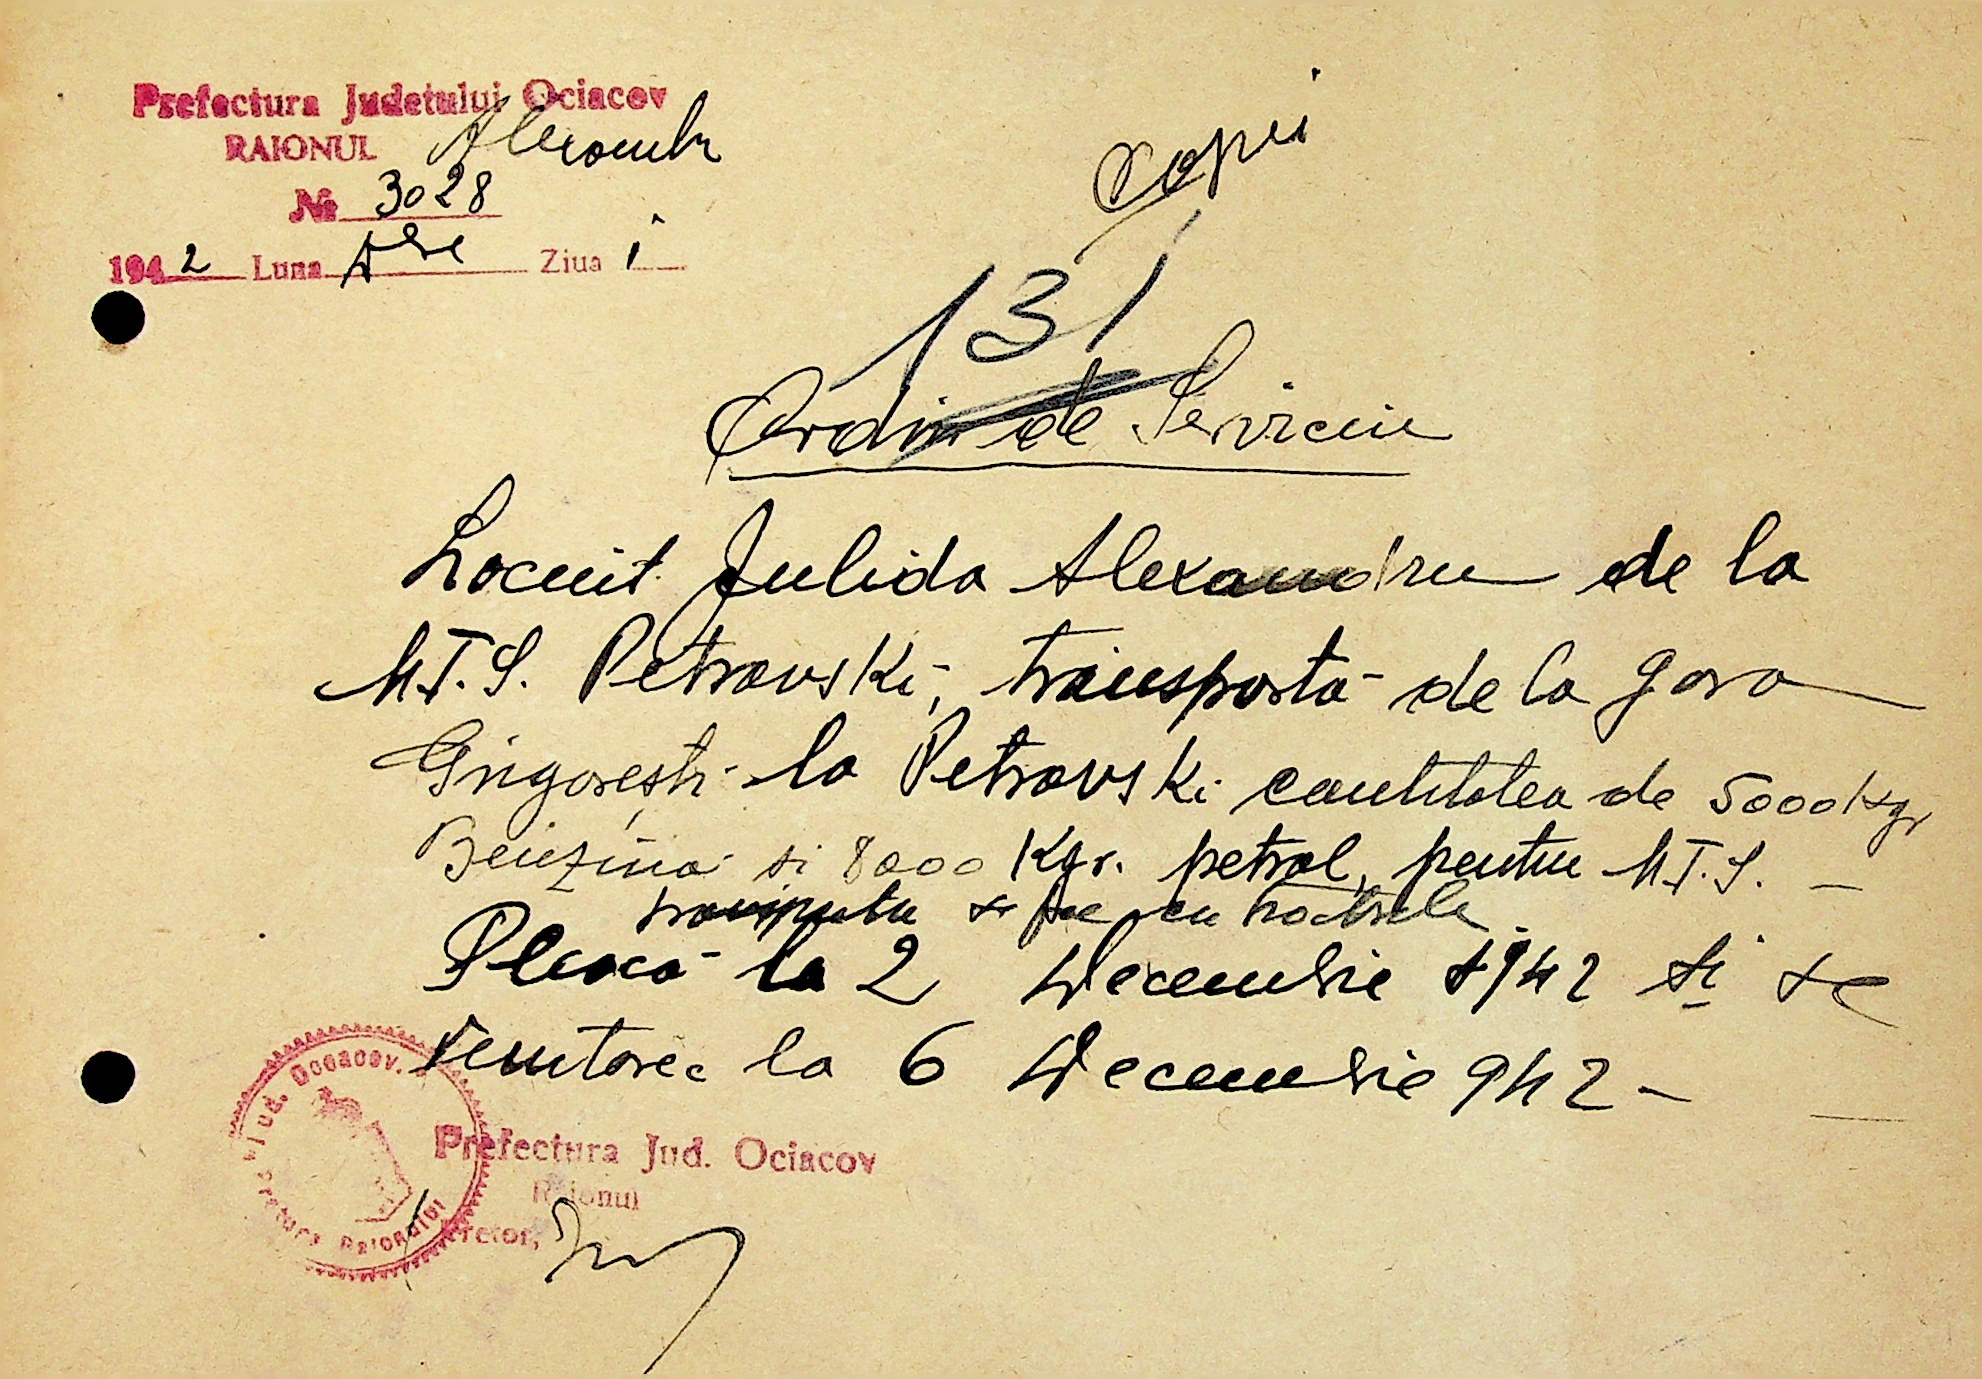 Prefectura Judetului Ociacov
RAIONUL
№ 3028
1942 Luna Xbre Ziua 1
Copii
131
Ordin de Serviciu
Locuit. Julida Alexandru de la
M.T.S. Petrovski, transportă de la gara
Grigorești la Petrovski cantitatea de 5000 Kgr
Benzină si 8000 Kgr. petrol, pentru M.T.S. —
se face cu
Pleacă la 2 Decembrie 1942 și se
reintoarce la 6 Decembrie 942 —
Jud. Ociacov.
Pretura Raionului
Prefectura Jud. Ociacov
Raionul
Pretor,